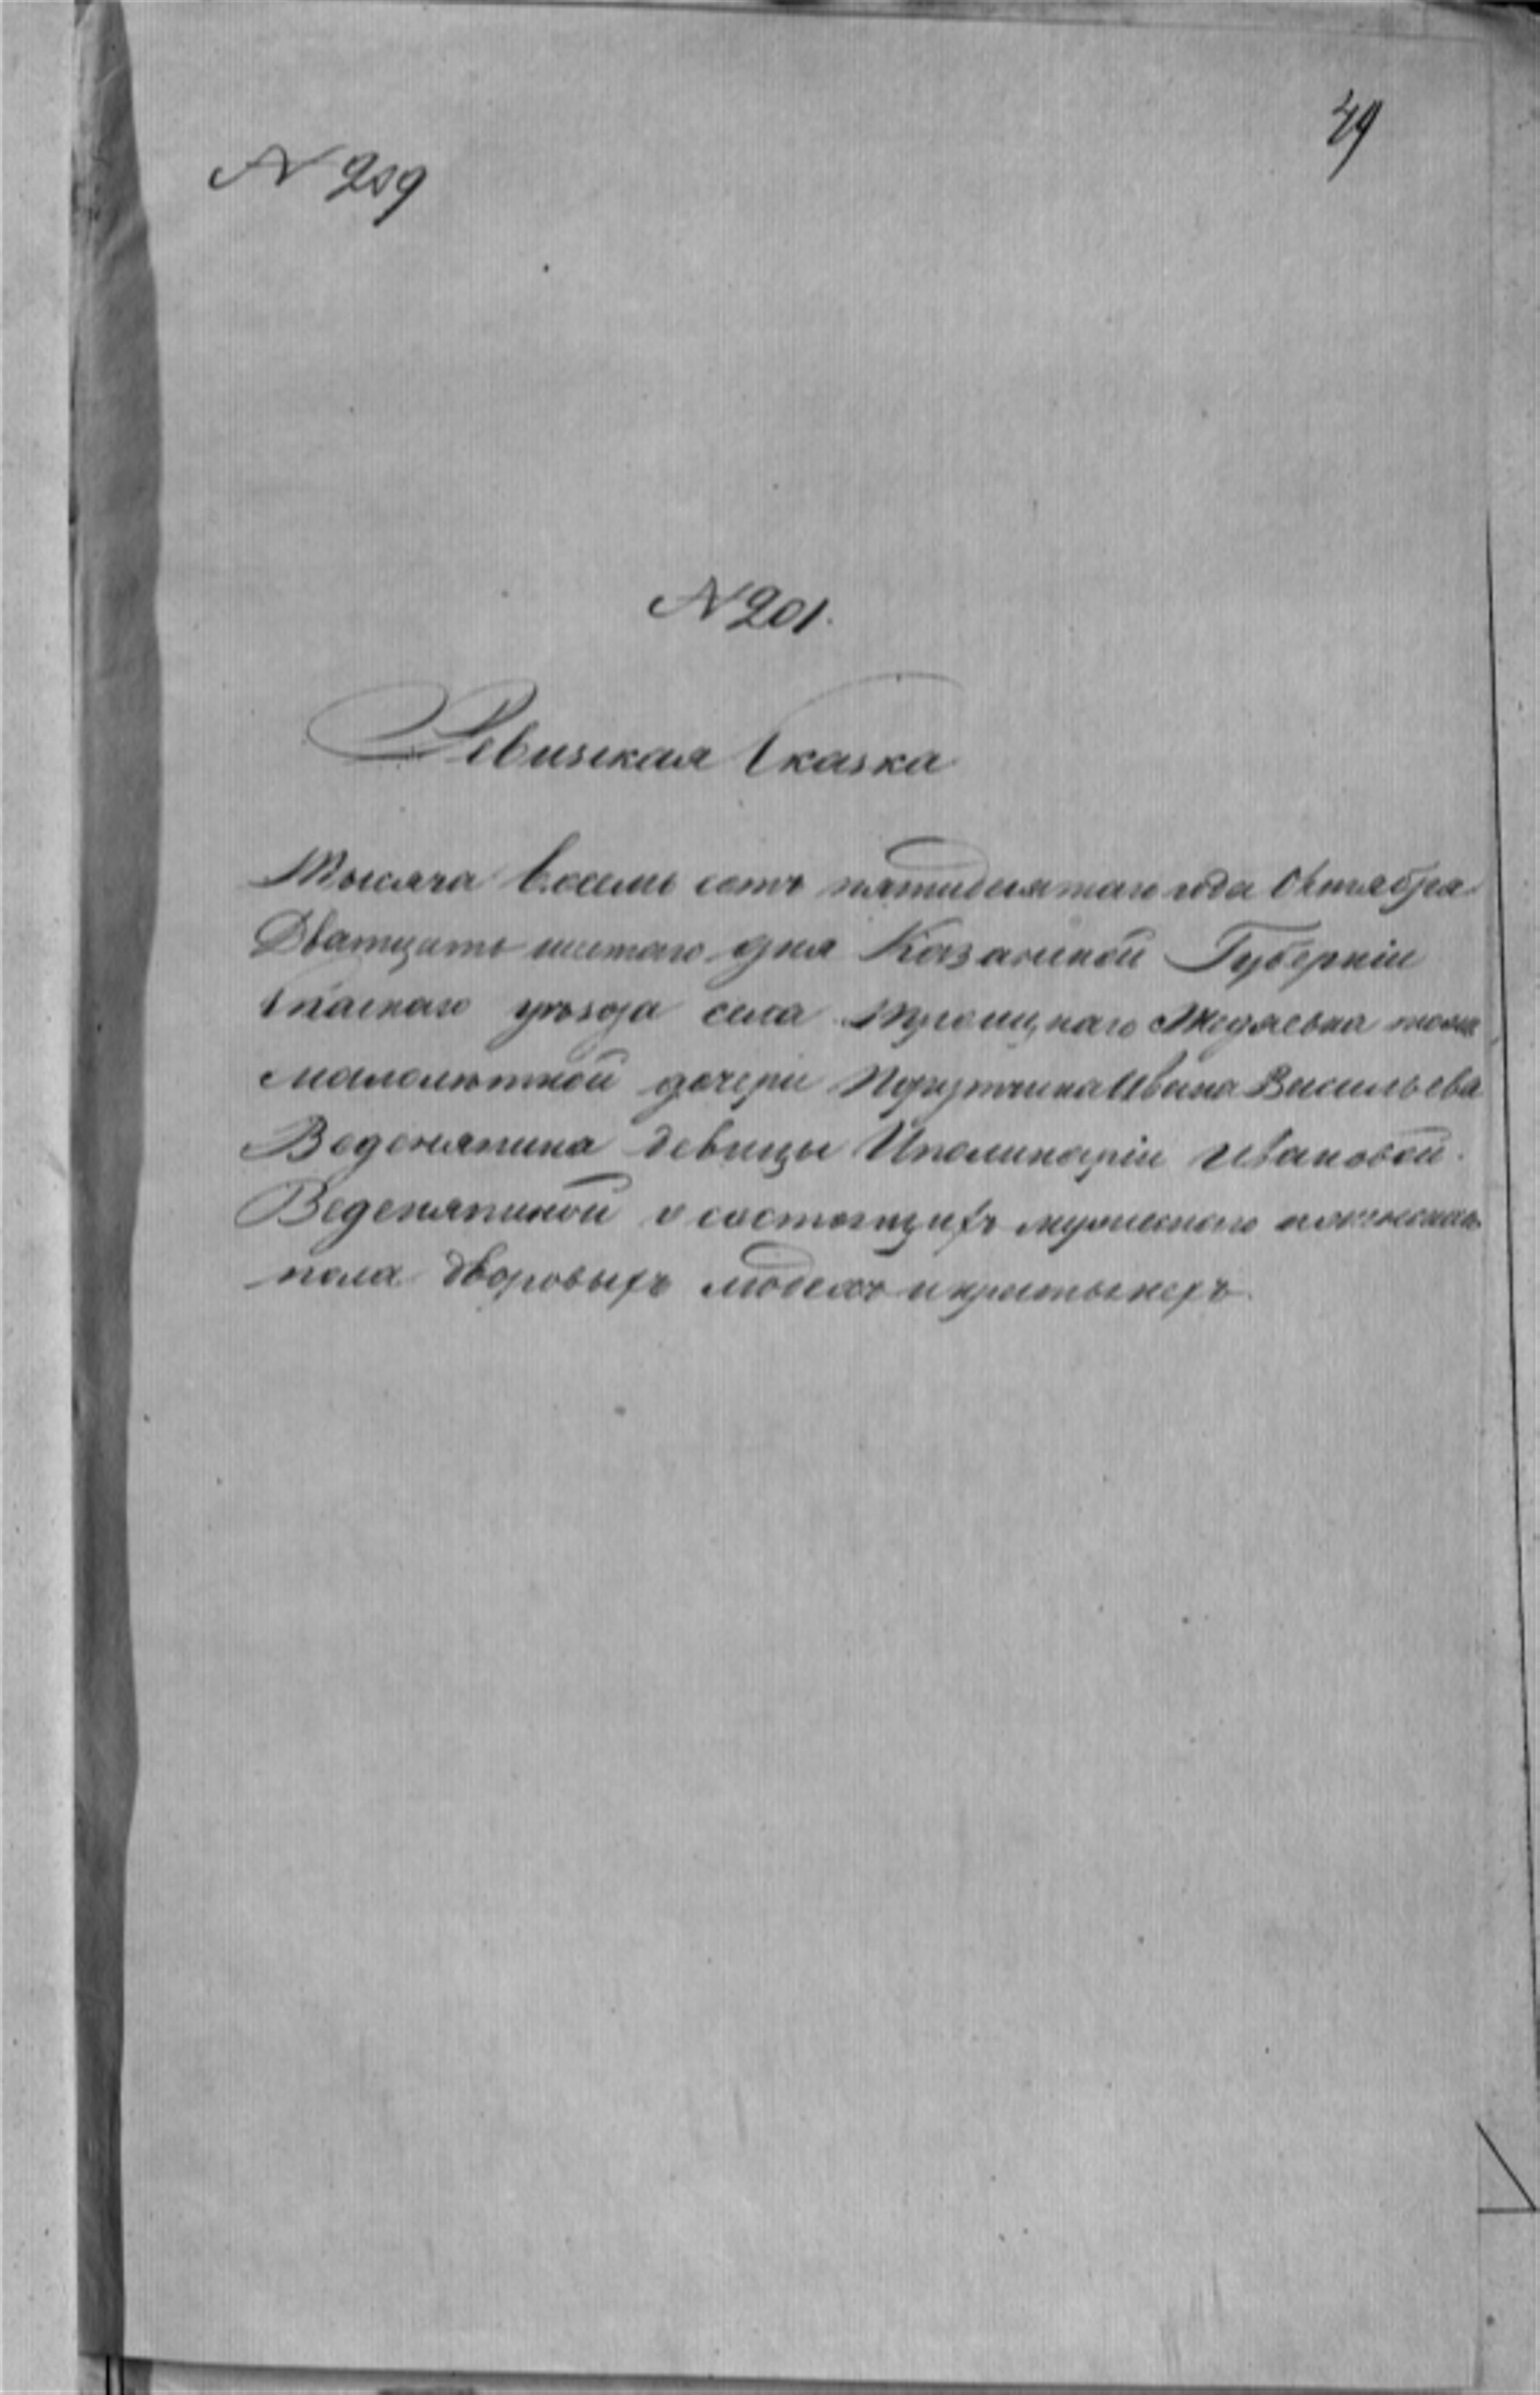 49
N 209
N 201.
Ревизская Сказка
Тысяча восемь сотъ пятидесятаго года Октября
Дватцать шестаго дня Казанской Губерніи
Спаскаго уѣзда села Троицкаго
малолѣтной дочери Порутчика Ивана Васильева
Веденяпина девицы Иполинаріи Ивановой
Веденяпиной о состоящихъ мужескаго и женскаго
пола дворовыхъ людехъ и крестьянехъ.